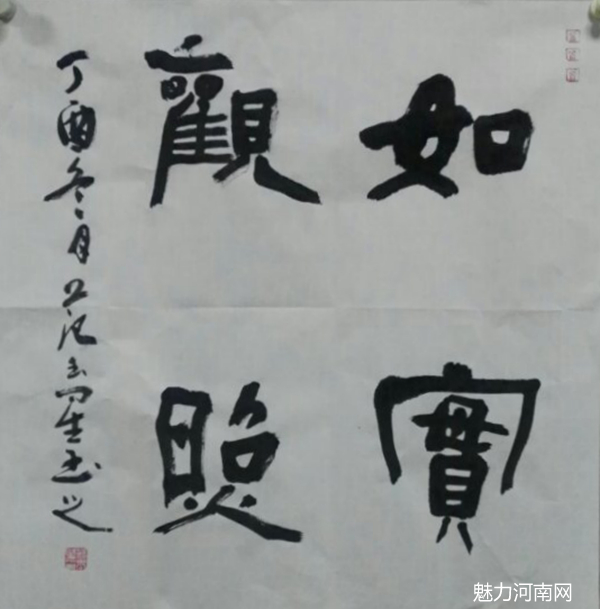 如實
觀照
丁酉冬月
魅力河南网